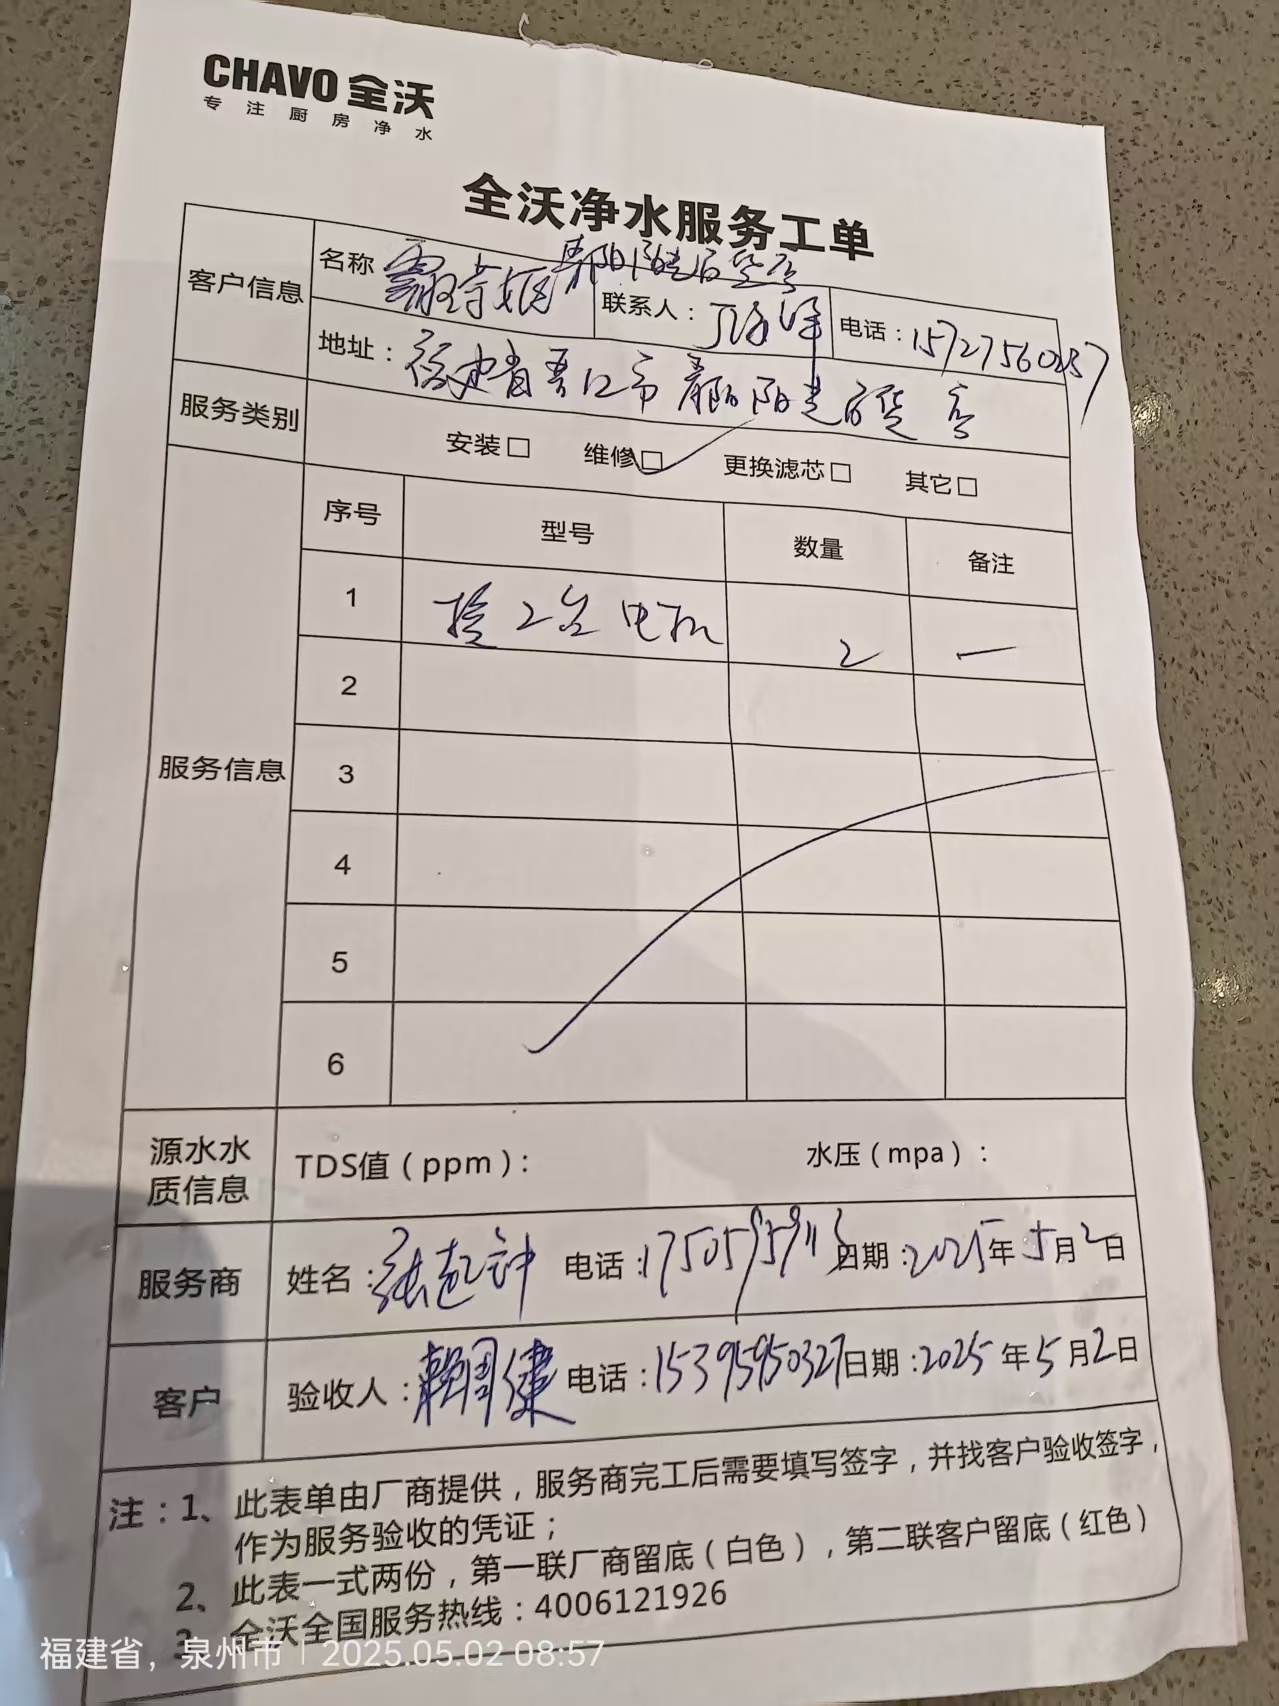 CHAVO 全沃
专注厨房净水
全沃净水服务工单
客户信息
名称
联系人：
电话：15727560257
地址：福建省晋江市
服务类别
安装□ 维修□ 更换滤芯□ 其它□
服务信息
序号 型号 数量 备注
1 2台电机 2 一
2
3
4
5
6
源水水质信息
TDS值（ppm）： 水压（mpa）：
服务商 姓名： 电话： 日期：2025年5月2日
客户 验收人：赖周健 电话：15395950327 日期：2025年5月2日
注：1、此表单由厂商提供，服务商完工后需要填写签字，并找客户验收签字，
作为服务验收的凭证；
2、此表一式两份，第一联厂商留底（白色），第二联客户留底（红色）
3、全沃全国服务热线：4006121926
福建省，泉州市 | 2025.05.02 08:57